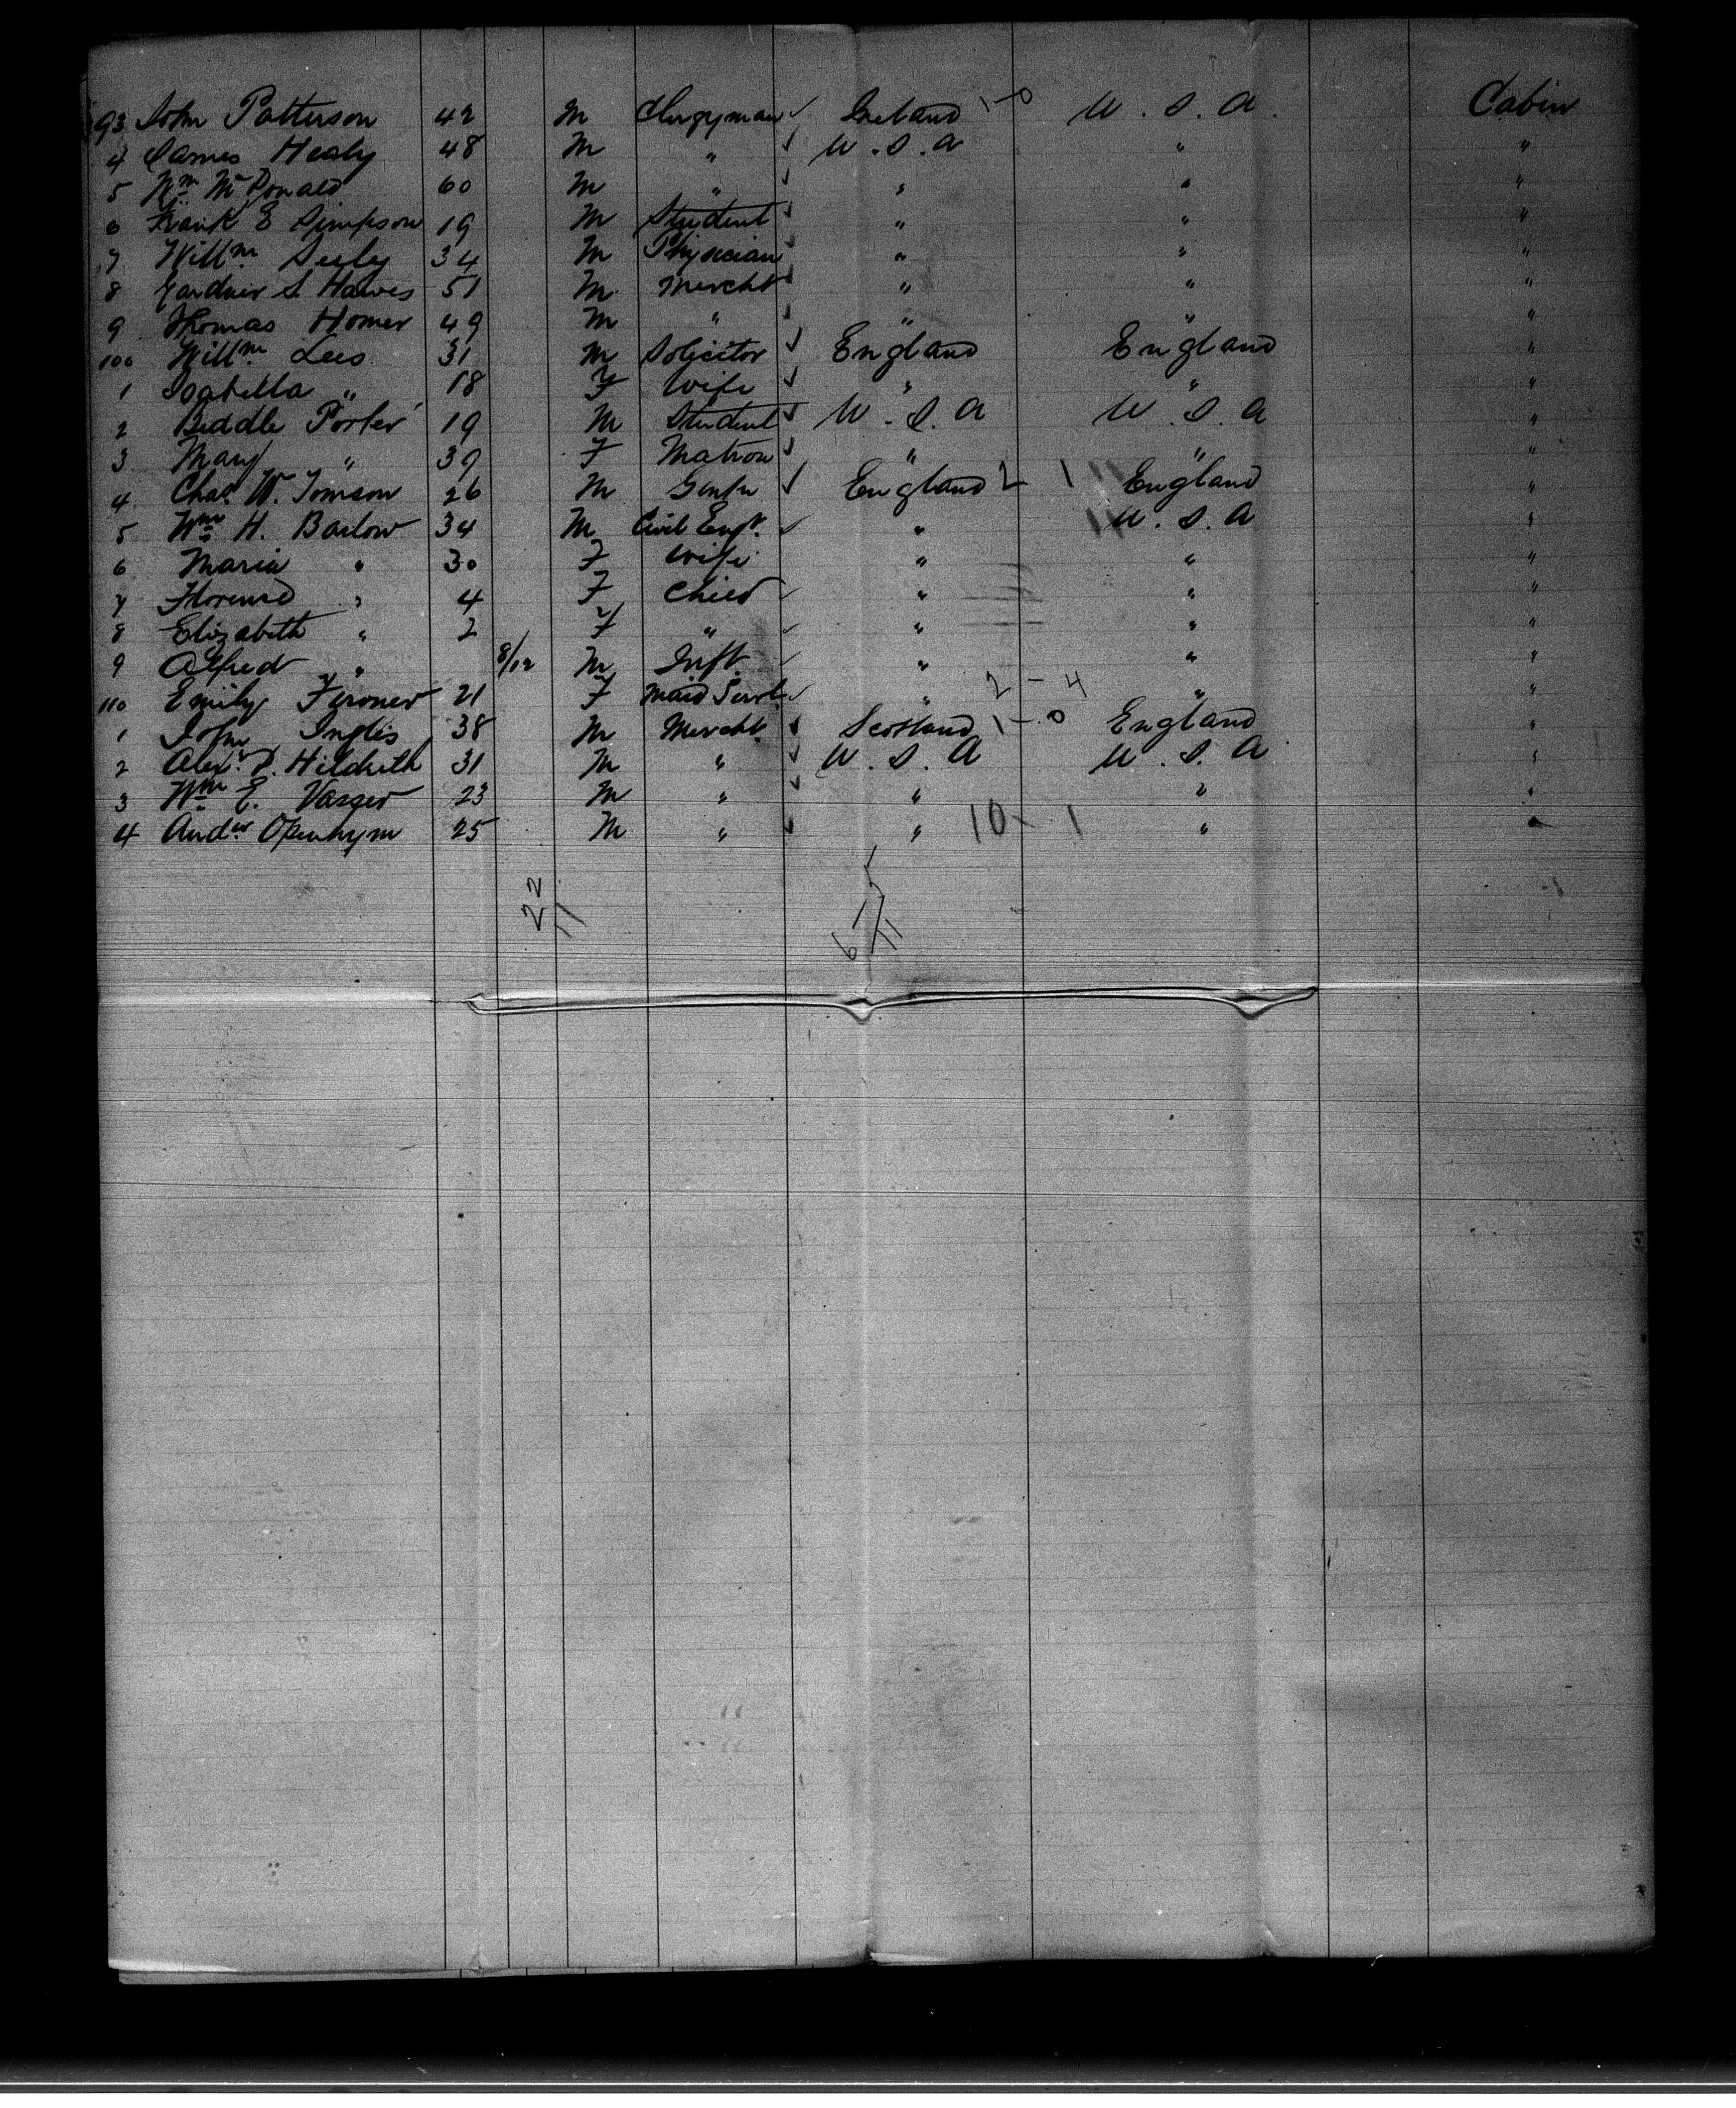 93 John Patterson 42 M Clergyman ✓ Ireland 1-0 U.S.A. Cabin
4 James Healy 48 M " ✓ U.S.A " "
5 Wm McDonald 60 M " ✓ " " "
6 Frank E Simpson 19 M Student ✓ " " "
7 Willm Seely 34 M Physician ✓ " " "
8 Gardner S Hawes 51 M Mercht ✓ " " "
9 Thomas Homer 49 M " " " "
100 Willm Lees 31 M Solicitor ✓ England England "
1 Isabella " 18 F Wife ✓ " " "
2 Biddle Porter 19 M Student ✓ U.S.A U.S.A "
3 Mary " 39 F Matron ✓ " " "
4 Chas W. Tomson 26 M Gentn ✓ England 2 1 England "
5 Wm H. Barlow 34 M Civil Engr. ✓ " U.S.A "
6 Maria " 30 F Wife " " "
7 Florence " 4 F Child ✓ " " "
8 Elizabeth " 2 F " ✓ " " "
9 Alfred " 8/12 M Inft. ✓ " " "
110 Emily 21 F Maid Servt ✓ " 2-4 " "
1 John Inglis 38 M Mercht. ✓ Scotland 1-0 England "
2 Alexr D. Hildreth 31 M " ✓ U.S.A U.S.A "
3 Wm E. 23 M " ✓ " " "
4 Andw Openhym 25 M " ✓ " 10-1 " "
22
11
6-5
11